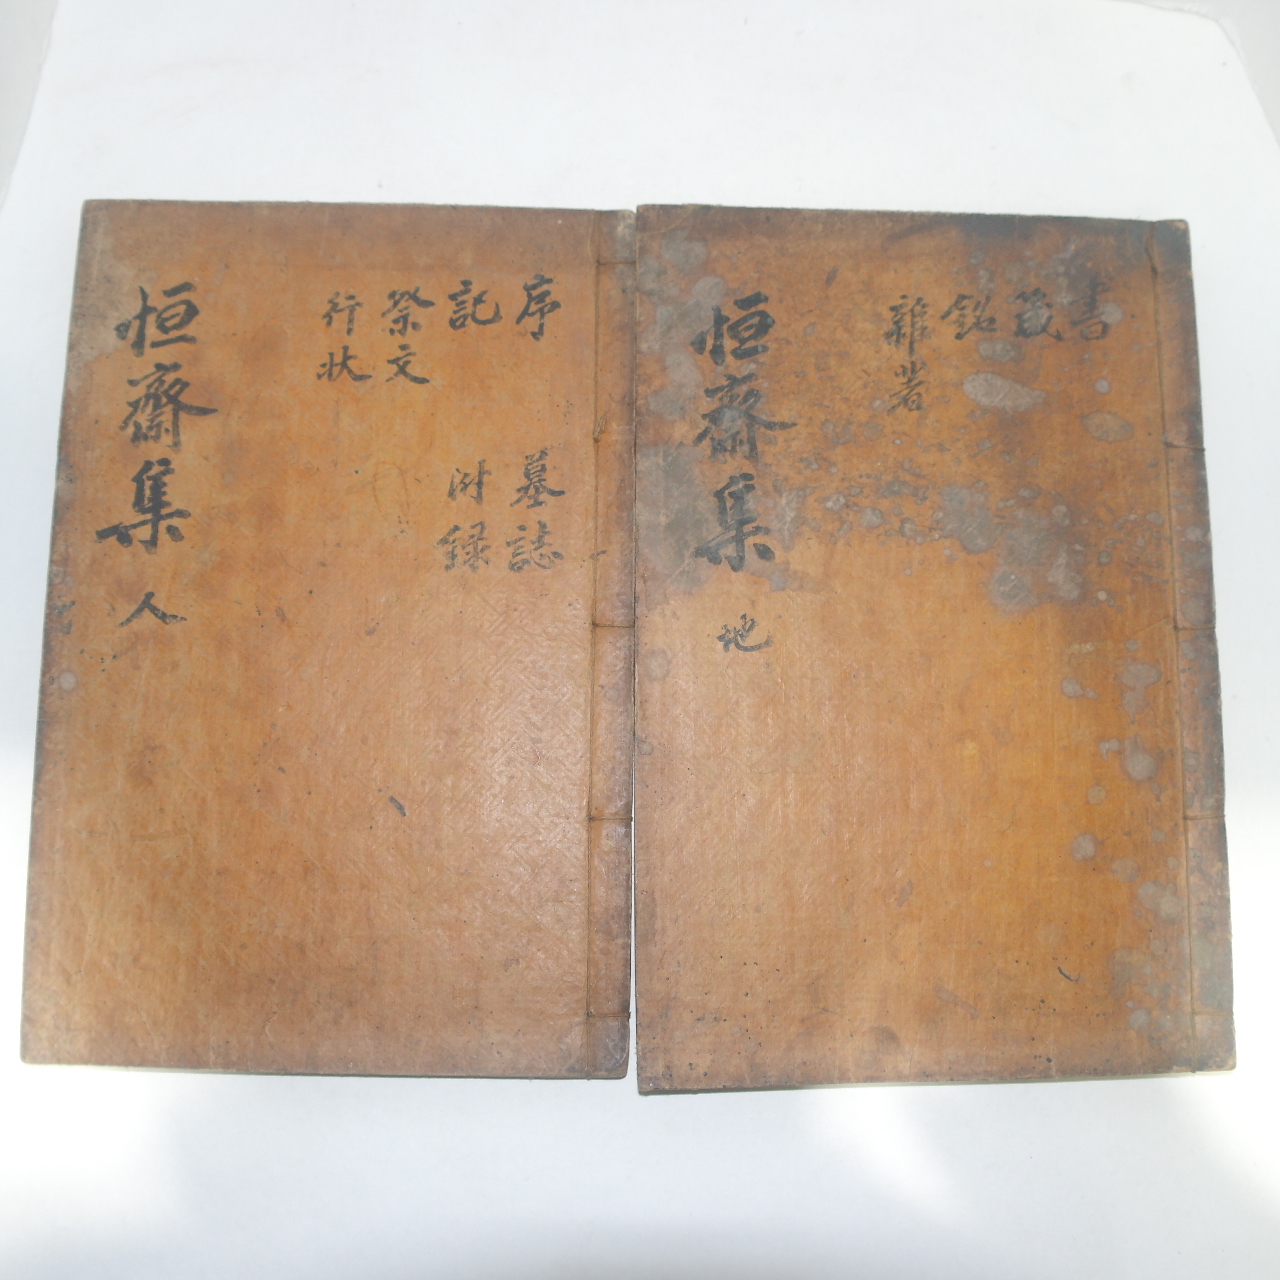 書
箴
銘
雜著
恒齋集 地
序 墓誌
記 附錄
祭文
行狀
恒齋集 人